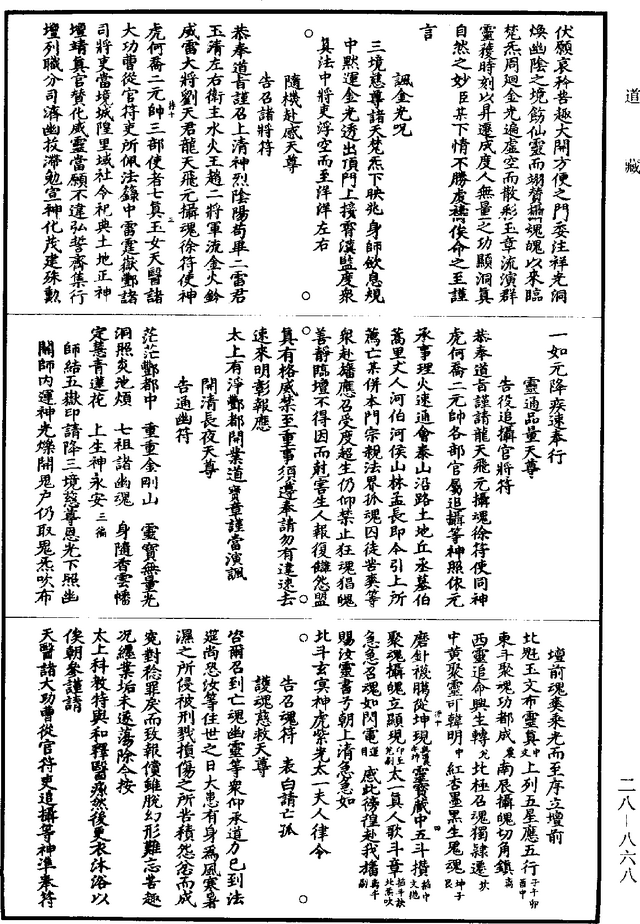 道藏
伏願哀矜苦趣大開方便之門委注祥光洞
煥幽陰之境飭仙靈而翊贊攝魂魄以來臨
梵炁周迴金光遍虛空而散彩玉章流演群
靈獲時刻以昇遷咸度人無量之功顯洞真
自然之妙臣某下情不勝虔禱俟命之至謹
言
諷金光呪
三境慈尊諸天梵炁下映兆身師歛息規
中默運金光透出頂門上接霄漢監度衆
真法中將吏浮空而至洋洋左右
隨機赴感天尊
告召諸將符
恭奉道旨謹召上清神烈陰陽苟畢二雷君
玉清左右衛主水火王趙二將軍流金火鈴
威雷大將劉天君龍天飛元攝魂徐符使神
虎何喬二元帥三部使者七真玉女天醫諸
大功曹從官符吏所佩法籙中雷霆嶽酆諸
司將吏當境城隍里域社令祀典土地正神
壇靖真官贊化威靈當願不違弘誓齊集行
壇列職分司濟幽拔滯勉宣神化茂建殊勳
一如元降疾速奉行
靈通品量天尊
告役追攝官將符
恭奉道旨謹請龍天飛元攝魂徐符使同神
虎何喬二元帥各部官屬追攝等神照依元
承事理火速通會泰山沿路土地丘丞墓伯
萬里丈人河伯河侯山林孟長即今引上所
薦亡某併本門宗親法界孤魂囚徒苦爽等
衆赴壇應召受度超生仍仰禁止狂魂猖魄
善靜臨壇不得因而射害生人報復讎怨盟
真有格威禁至重事須遵奉請勿有違速去
速來明彰報應
太上有淨酆都開業道寶章謹當演諷
開清長夜天尊
告通幽符
茫茫酆都中　重重金剛山　靈寶無量光
洞照炎池煩　七祖諸幽魂　身隨香雲幡
定慧青蓮花　上生神永安三徧
師結五嶽印請降三境慈尊恩光下照幽
關師內運神光爍開鬼戶仍取鬼炁吹布
壇前魂爽乘光而至序立壇前
北魁玉文布靈真　上列五星應五行
東斗聚魂功都成　南辰攝魄切角鎮
西靈追命與生轉　北極召魂獨隸遷
中黃聚靈可韓明　紅杏墨黑生鬼魂
磨針機關從坤現　靈寶藏中五斗攢
聚魂攝魄立顯現　太一真人歌斗章
急急召魂如閃電　感此徬徨赴我壇
賜汝靈書令朝上清急急如
北斗玄冥神虎紫光太一夫人律令
告召魂符　表白請亡孤
護魂慈救天尊
咨爾召到亡魂幽靈等衆仰承道力已到法
筵尚恐汝等住世之日大患有身為風寒暑
濕之所侵被刑戮損傷之所苦積怨忿而成
寃對稔罪戾而致報償雖脫幻形難忘苦趣
況纏業垢未遂蕩除今按
太上科教特與和釋醫療然後更衣沐浴以
俟朝參謹請
天醫諸大功曹從官符吏追攝等神準奉符
二八—八六八